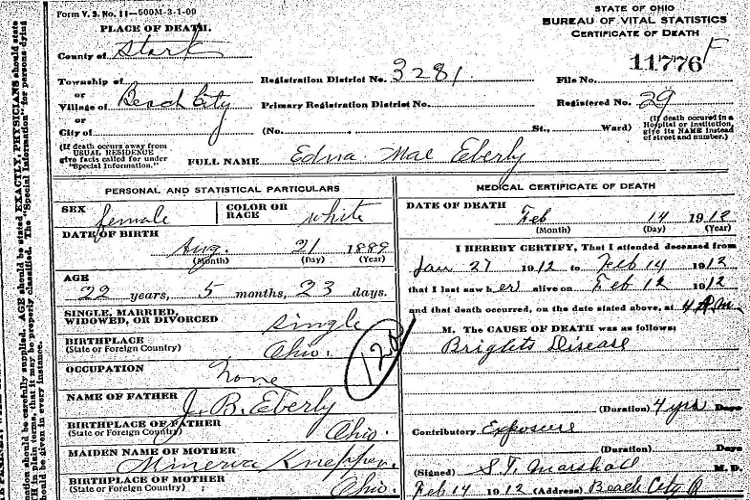 Form V. S. No. 11—500M-3-1-09
PLACE OF DEATH.
County of Stark
Township of
or
Village of Beach City
or
City of
(If death occurs away from
USUAL RESIDENCE
give facts called for under
"Special Information.")
STATE OF OHIO
BUREAU OF VITAL STATISTICS
CERTIFICATE OF DEATH
Registration District No. 3281
File No. 11776 F
Primary Registration District No.
Registered No. 29
(No. St., Ward)
(If death occured in a
Hospital or institution,
give its NAME instead
of street and number.)
FULL NAME Edna Mae Eberly
PERSONAL AND STATISTICAL PARTICULARS
SEX female
COLOR OR RACE white
DATE OF BIRTH
Aug. 21 1889
(Month) (Day) (Year)
AGE
22 years, 5 months, 23 days.
SINGLE, MARRIED,
WIDOWED, OR DIVORCED single
BIRTHPLACE
(State or Foreign Country) Ohio.
120
OCCUPATION
None
NAME OF FATHER
J. B. Eberly
BIRTHPLACE OF FATHER
(State or Foreign Country) Ohio.
MAIDEN NAME OF MOTHER
Minerva Knepper.
BIRTHPLACE OF MOTHER
(State or Foreign Country) Ohio.
MEDICAL CERTIFICATE OF DEATH
DATE OF DEATH
Feb 14 1912
(Month) (Day) (Year)
I HEREBY CERTIFY, That I attended deceased from
Jan 27 1912 to Feb 14 1912
that I last saw her alive on Feb 12 1912
and that death occurred, on the date stated above, at 4 A.m.
M. The CAUSE OF DEATH was as follows:
Brights Disease
(Duration) 4 yrs Days
Contributory Exposure
(Duration) Days
(Signed) S.T. Marshall M.D.
Feb 14 1912 (Address) Beach City O
EXACTLY, PHYSICIANS should state
"Special Information" for persons dying
should be carefully supplied. AGE should be stated
in plain terms, that it may be properly classified. The
should be given in every instance.